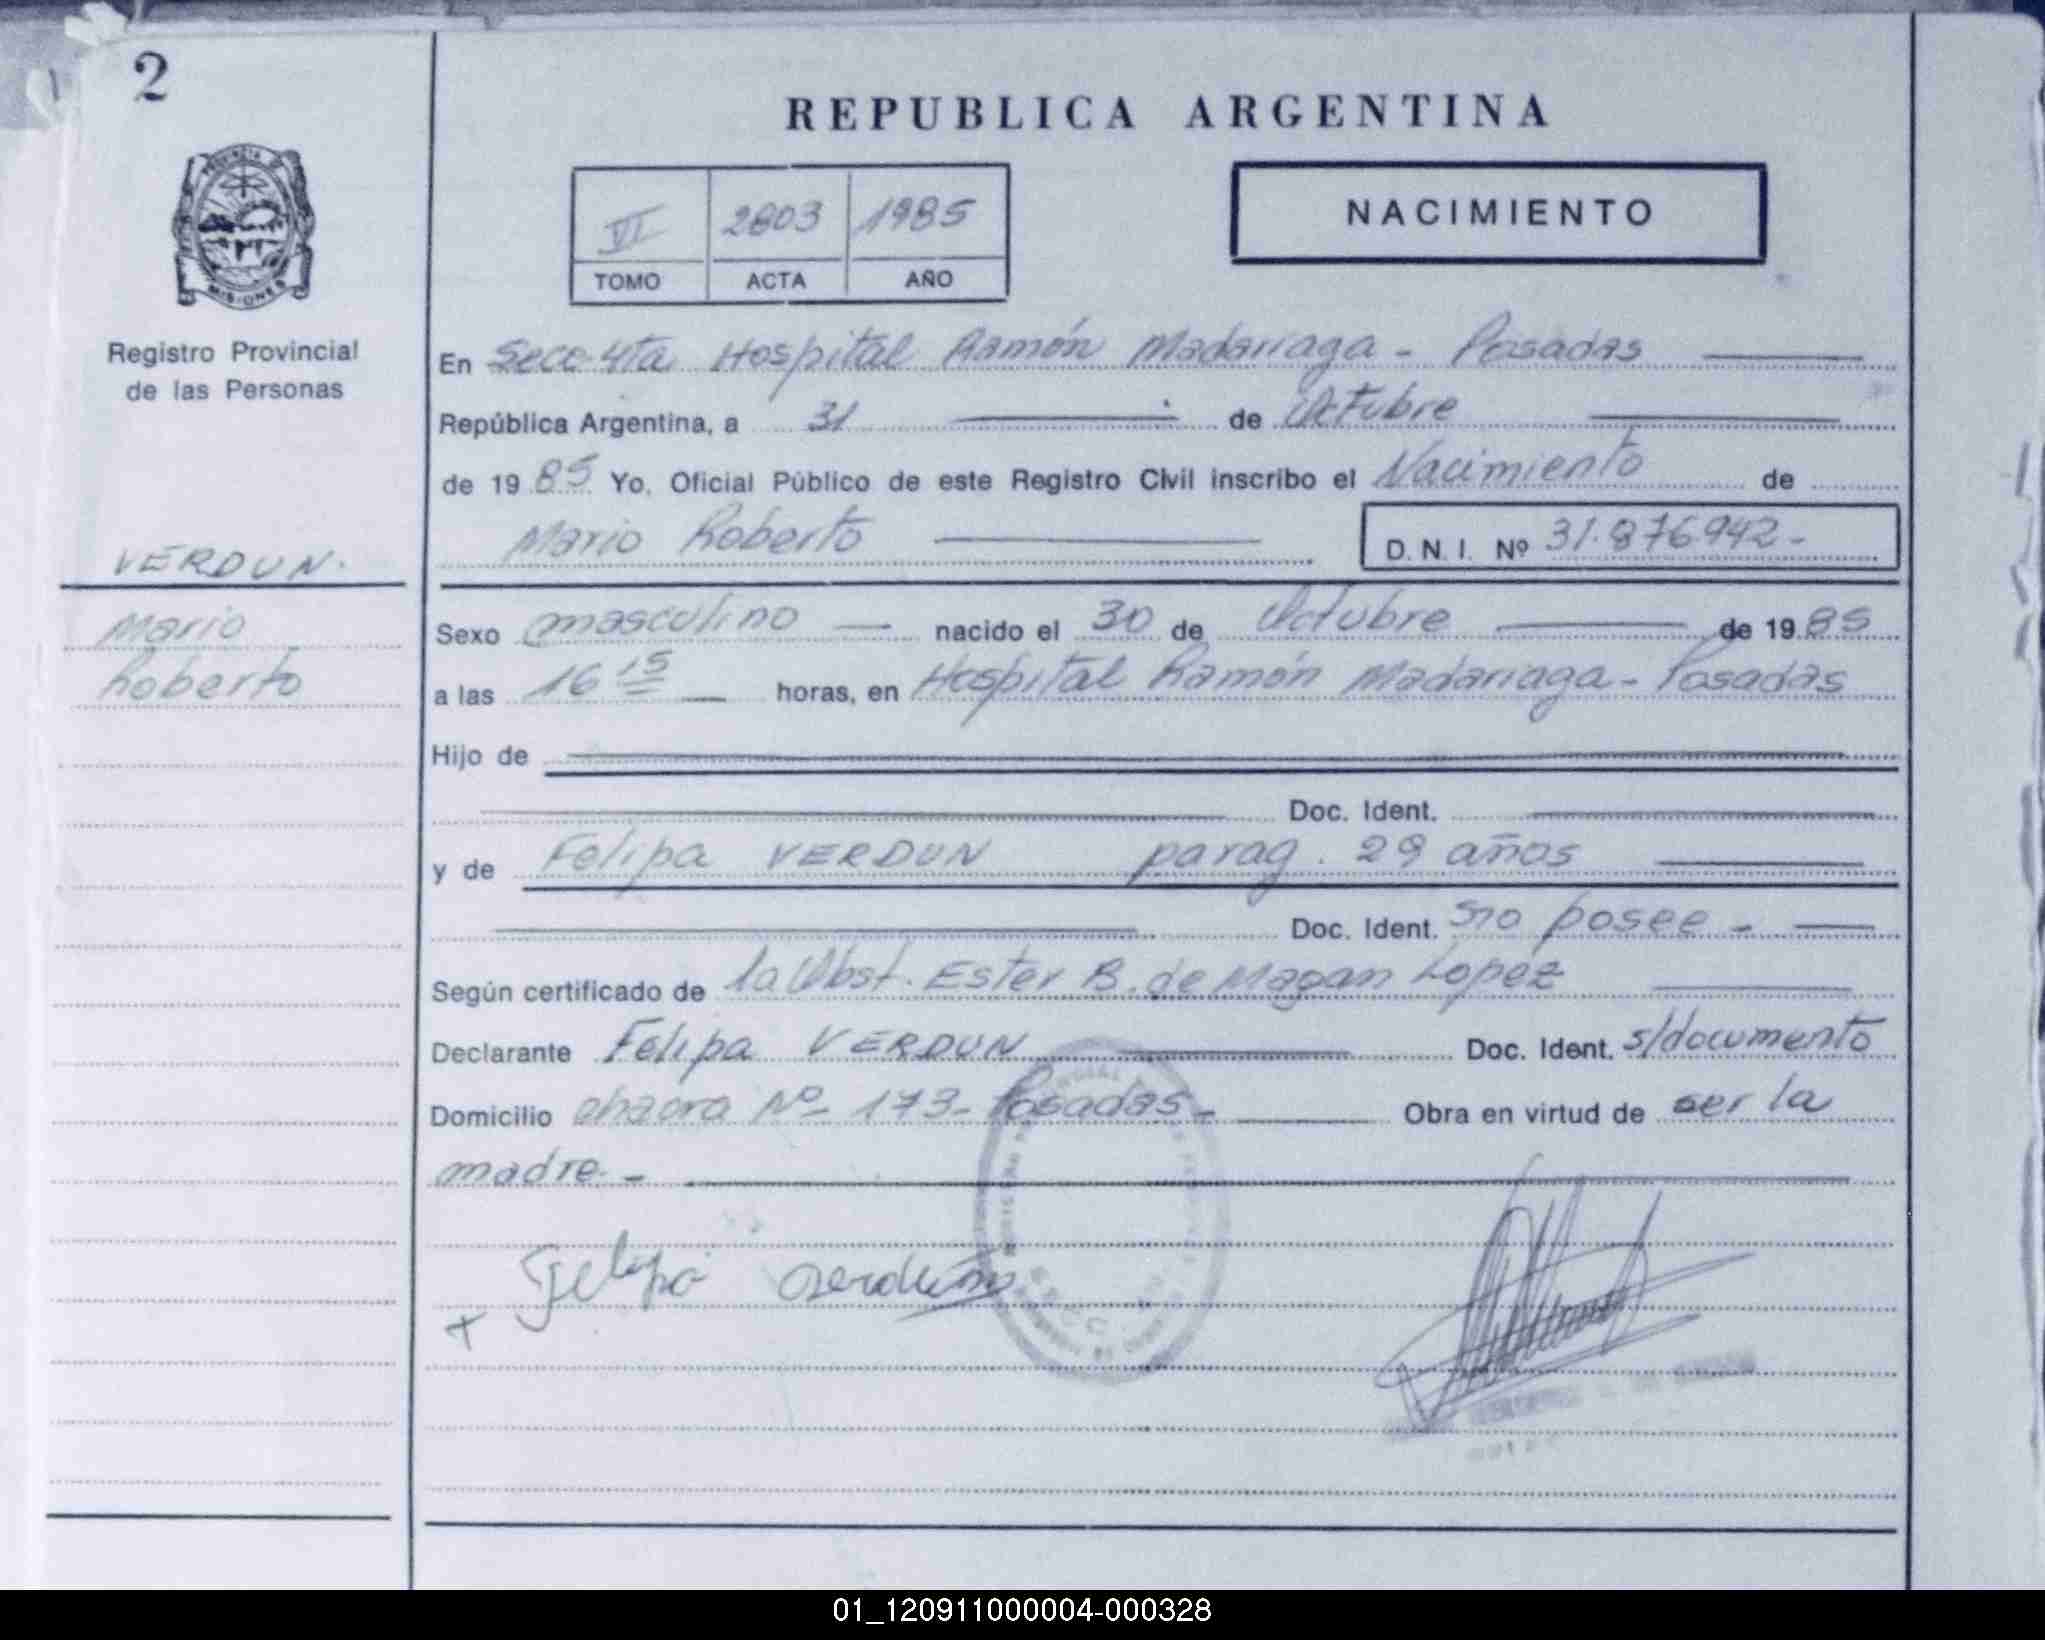 2
REPUBLICA ARGENTINA
PROVINCIA DE
MISIONES
Registro Provincial
de las Personas
VI 2803 1985
TOMO ACTA AÑO
NACIMIENTO
En Secc 4ta Hospital Ramón Madariaga - Posadas
República Argentina, a 31 de Octubre
de 1985 Yo, Oficial Público de este Registro Civil inscribo el Nacimiento de
Mario Roberto D.N.I. Nº 31.876.942-
VERDUN.
Mario
Roberto
Sexo masculino nacido el 30 de Octubre de 1985
a las 16 15 horas, en Hospital Ramón Madariaga - Posadas
Hijo de
Doc. Ident.
y de Felipa VERDUN parag. 29 años
Doc. Ident. no posee -
Según certificado de la Obst. Ester B. de Magan Lopez
Declarante Felipa VERDUN Doc. Ident. s/documento
Domicilio chacra Nº- 173- Posadas- Obra en virtud de ser la
madre -
Felipa Verdun
01_120911000004-000328